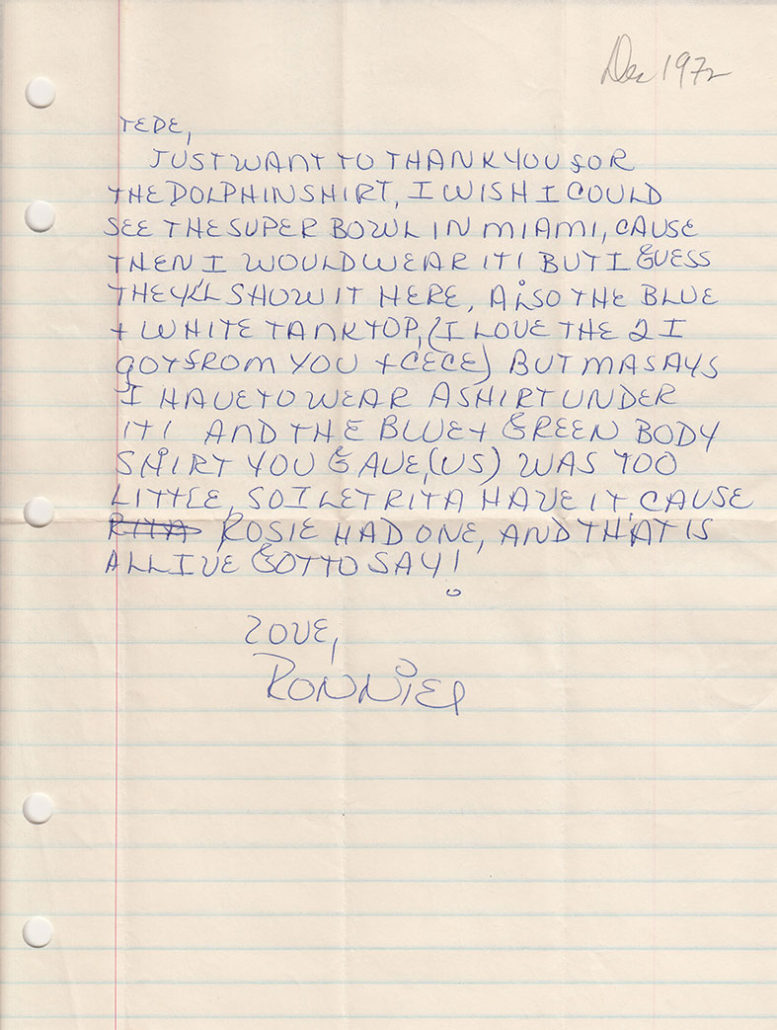 Dec 1972
TEDE,
JUST WANT TO THANK YOU FOR
THE DOLPHIN SHIRT, I WISH I COULD
SEE THE SUPER BOWL IN MIAMI, CAUSE
THEN I WOULD WEAR IT! BUT I GUESS
THEY'LL SHOW IT HERE, ALSO THE BLUE
+ WHITE TANK TOP, (I LOVE THE 2 I
GOT FROM YOU + CECE) BUT MA SAYS
I HAVE TO WEAR A SHIRT UNDER
IT! AND THE BLUE + GREEN BODY
SHIRT YOU GAVE, (US) WAS TOO
LITTLE, SO I LET RITA HAVE IT, CAUSE
RITA ROSIE HAD ONE, AND THAT IS
ALL I VE GOT TO SAY!
LOVE,
RONNIE